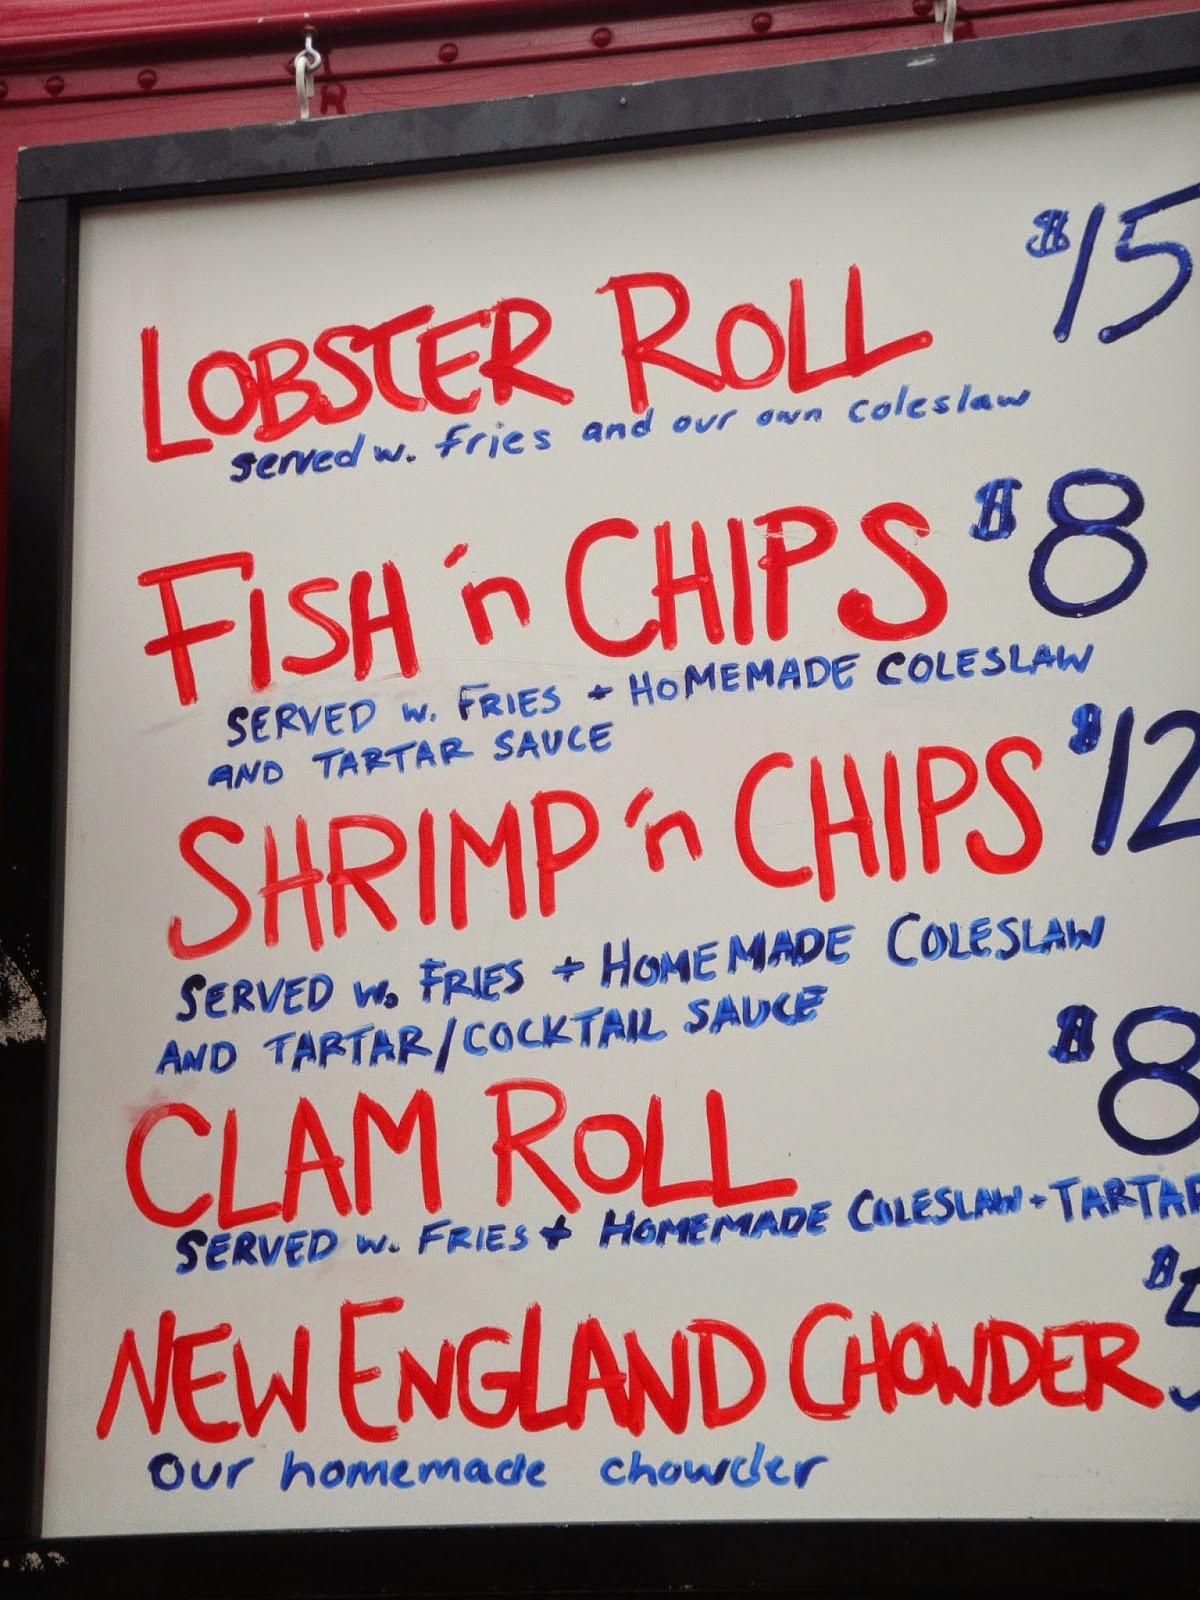 LOBSTER ROLL $15
served w. fries and our own coleslaw
FISH 'n CHIPS $8
SERVED W. FRIES + HOMEMADE COLESLAW
AND TARTAR SAUCE
SHRIMP 'n CHIPS $12
SERVED W. FRIES + HOMEMADE COLESLAW
AND TARTAR/COCKTAIL SAUCE
CLAM ROLL $8
SERVED W. FRIES + HOMEMADE COLESLAW + TARTAR
NEW ENGLAND CHOWDER
our homemade chowder